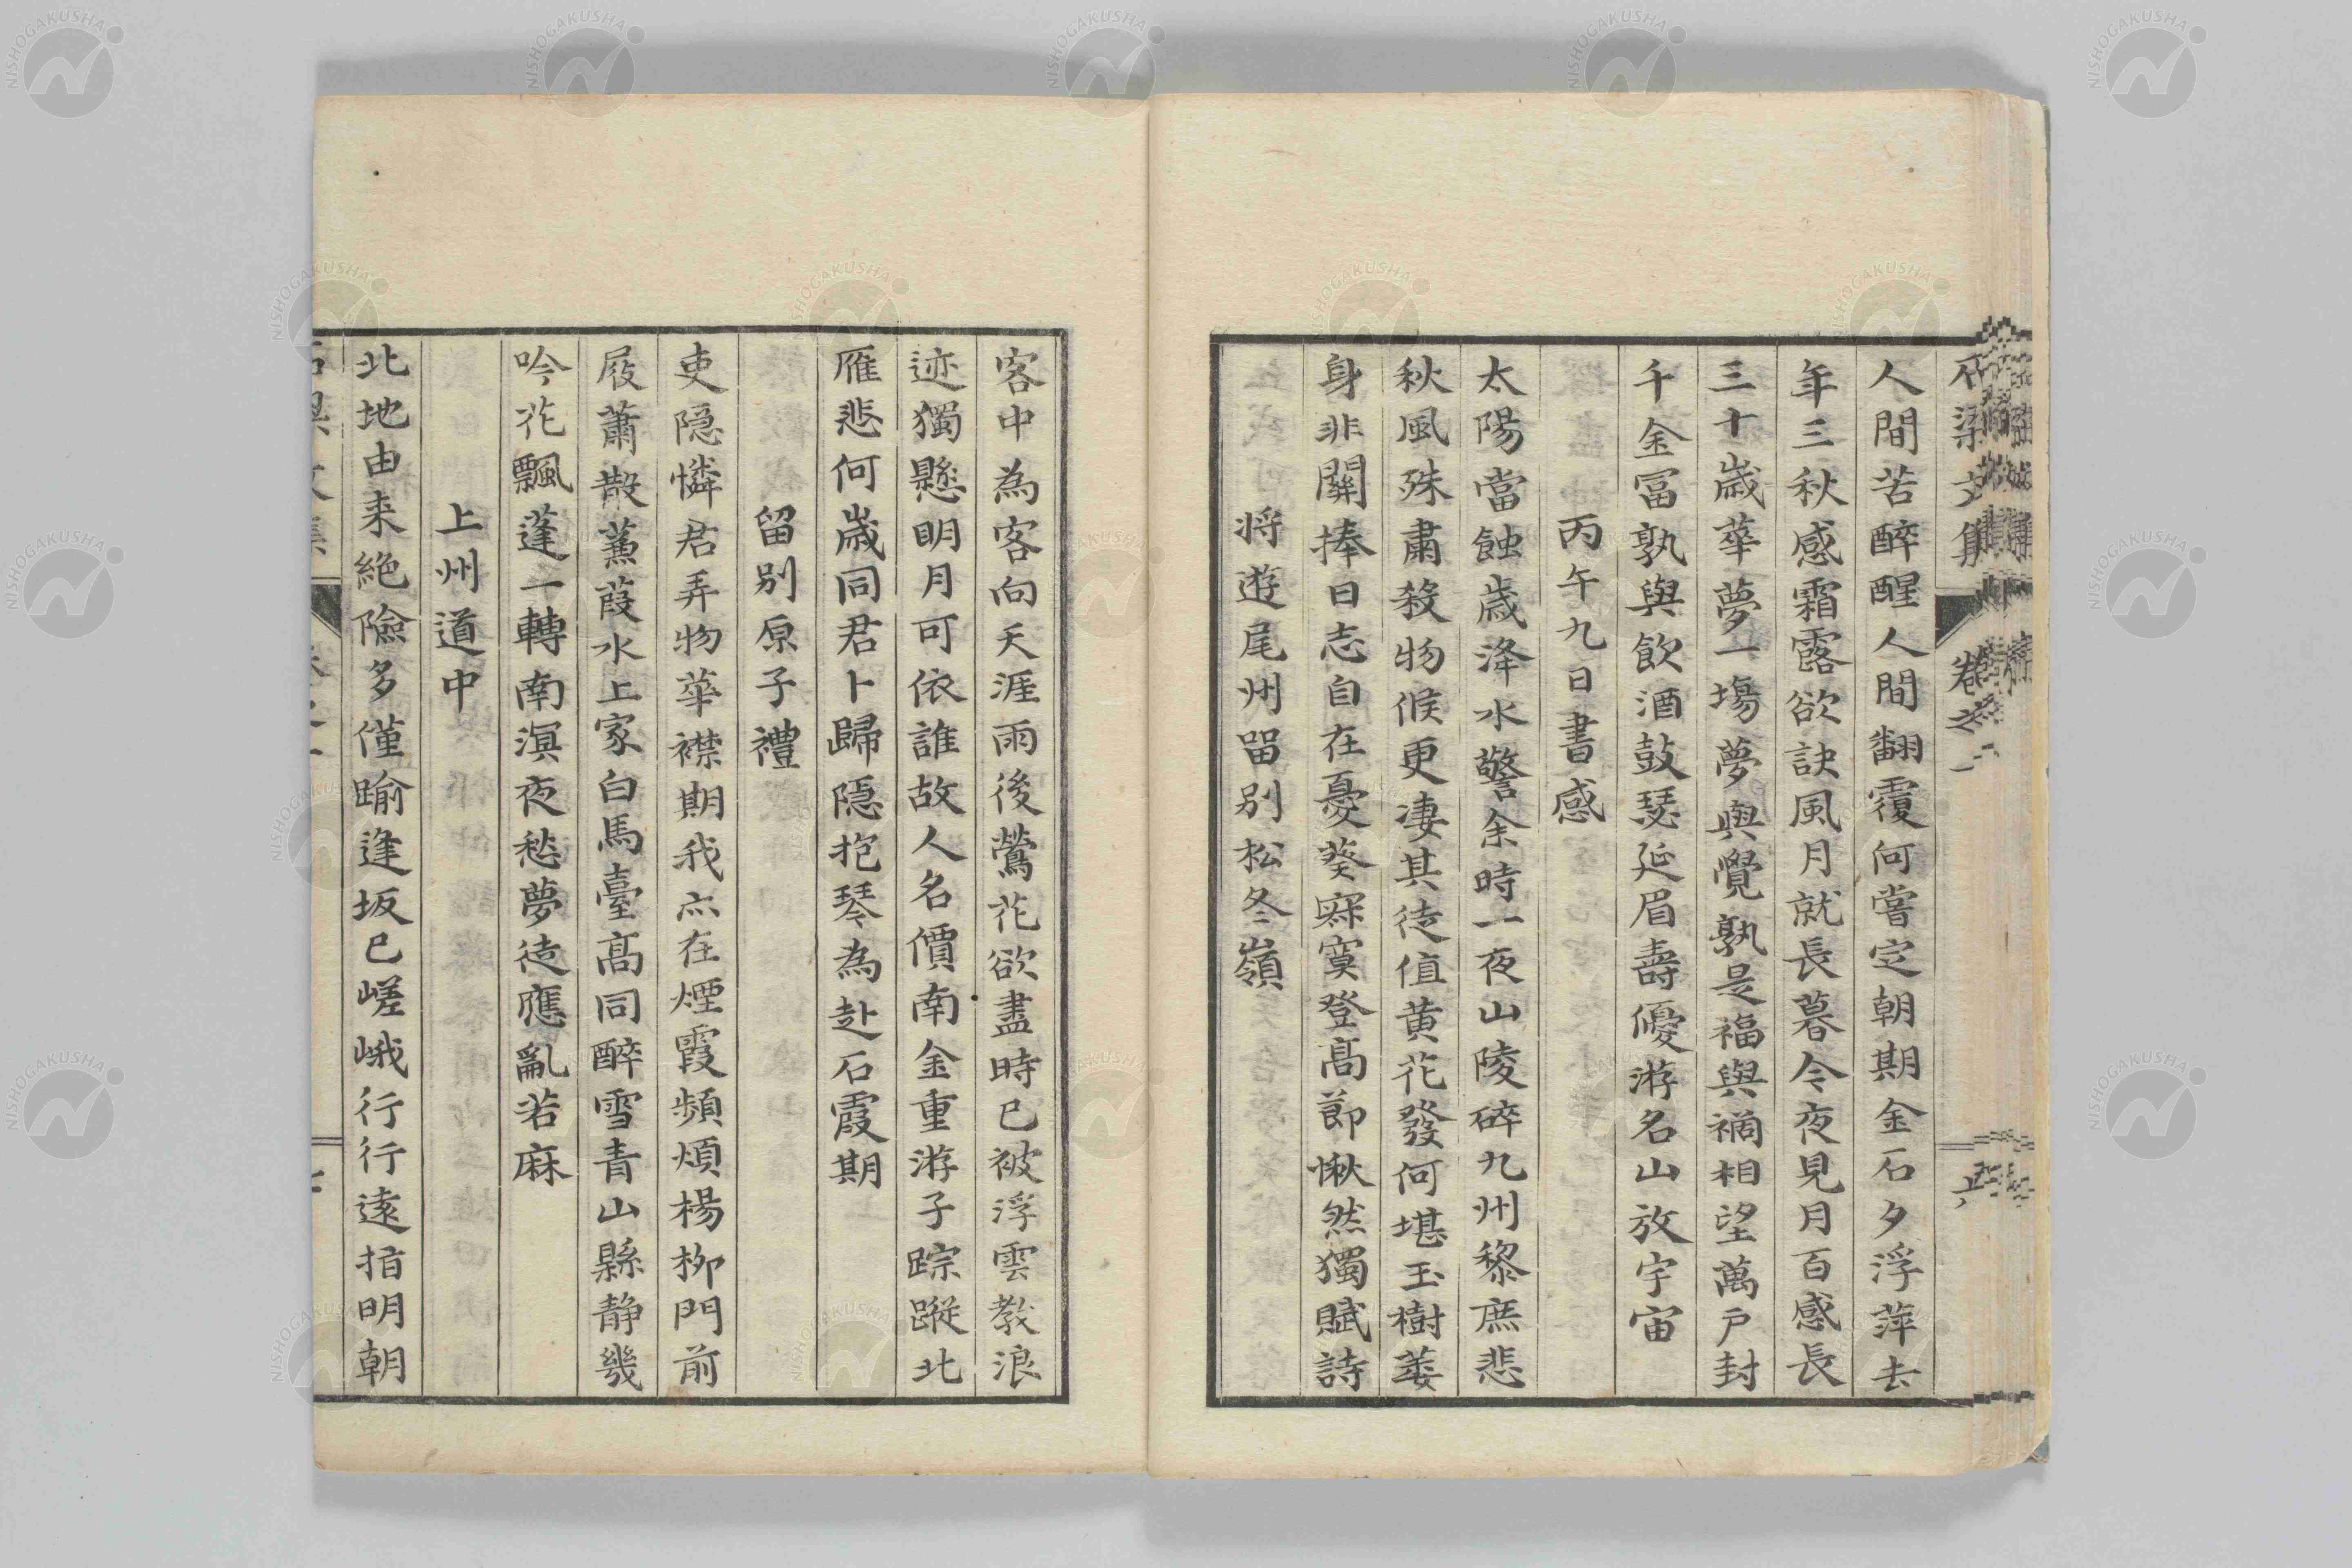 人間苦醉醒人間翻覆何嘗定朝期金石夕浮萍去
年三秋感霜露欲訣風月就長暮今夜見月百感長
三十歳華夢一塲夢與覺孰是福與禍相望萬戸封
千金冨孰與飲酒鼓瑟延眉壽優游名山放宇宙
丙午九日書感
太陽當蝕歳洚水警余時一夜山陵碎九州黎庶悲
秋風殊肅殺物候更凄其徒值黄花發何堪玉樹萎
身非關捧日志自在憂葵寐寞登髙節愀然獨賦詩
将遊尾州留別松冬嶺
客中為客向天涯雨後鶯花欲盡時已被浮雲教浪
迹獨懸明月可依誰故人名價南金重游子踪蹤北
雁悲何歳同君卜歸隠抱琴為赴石霞期
留别原子禮
吏隠憐君弄物華襟期我亦在煙霞頻煩楊柳門前
屐蕭散蒹葭水上家白馬臺髙同醉雪青山縣静幾
吟花飄蓬一轉南溟夜愁夢徒應亂若麻
上州道中
北地由来絶險多僅踰逢坂已嵯峨行行遠指明朝